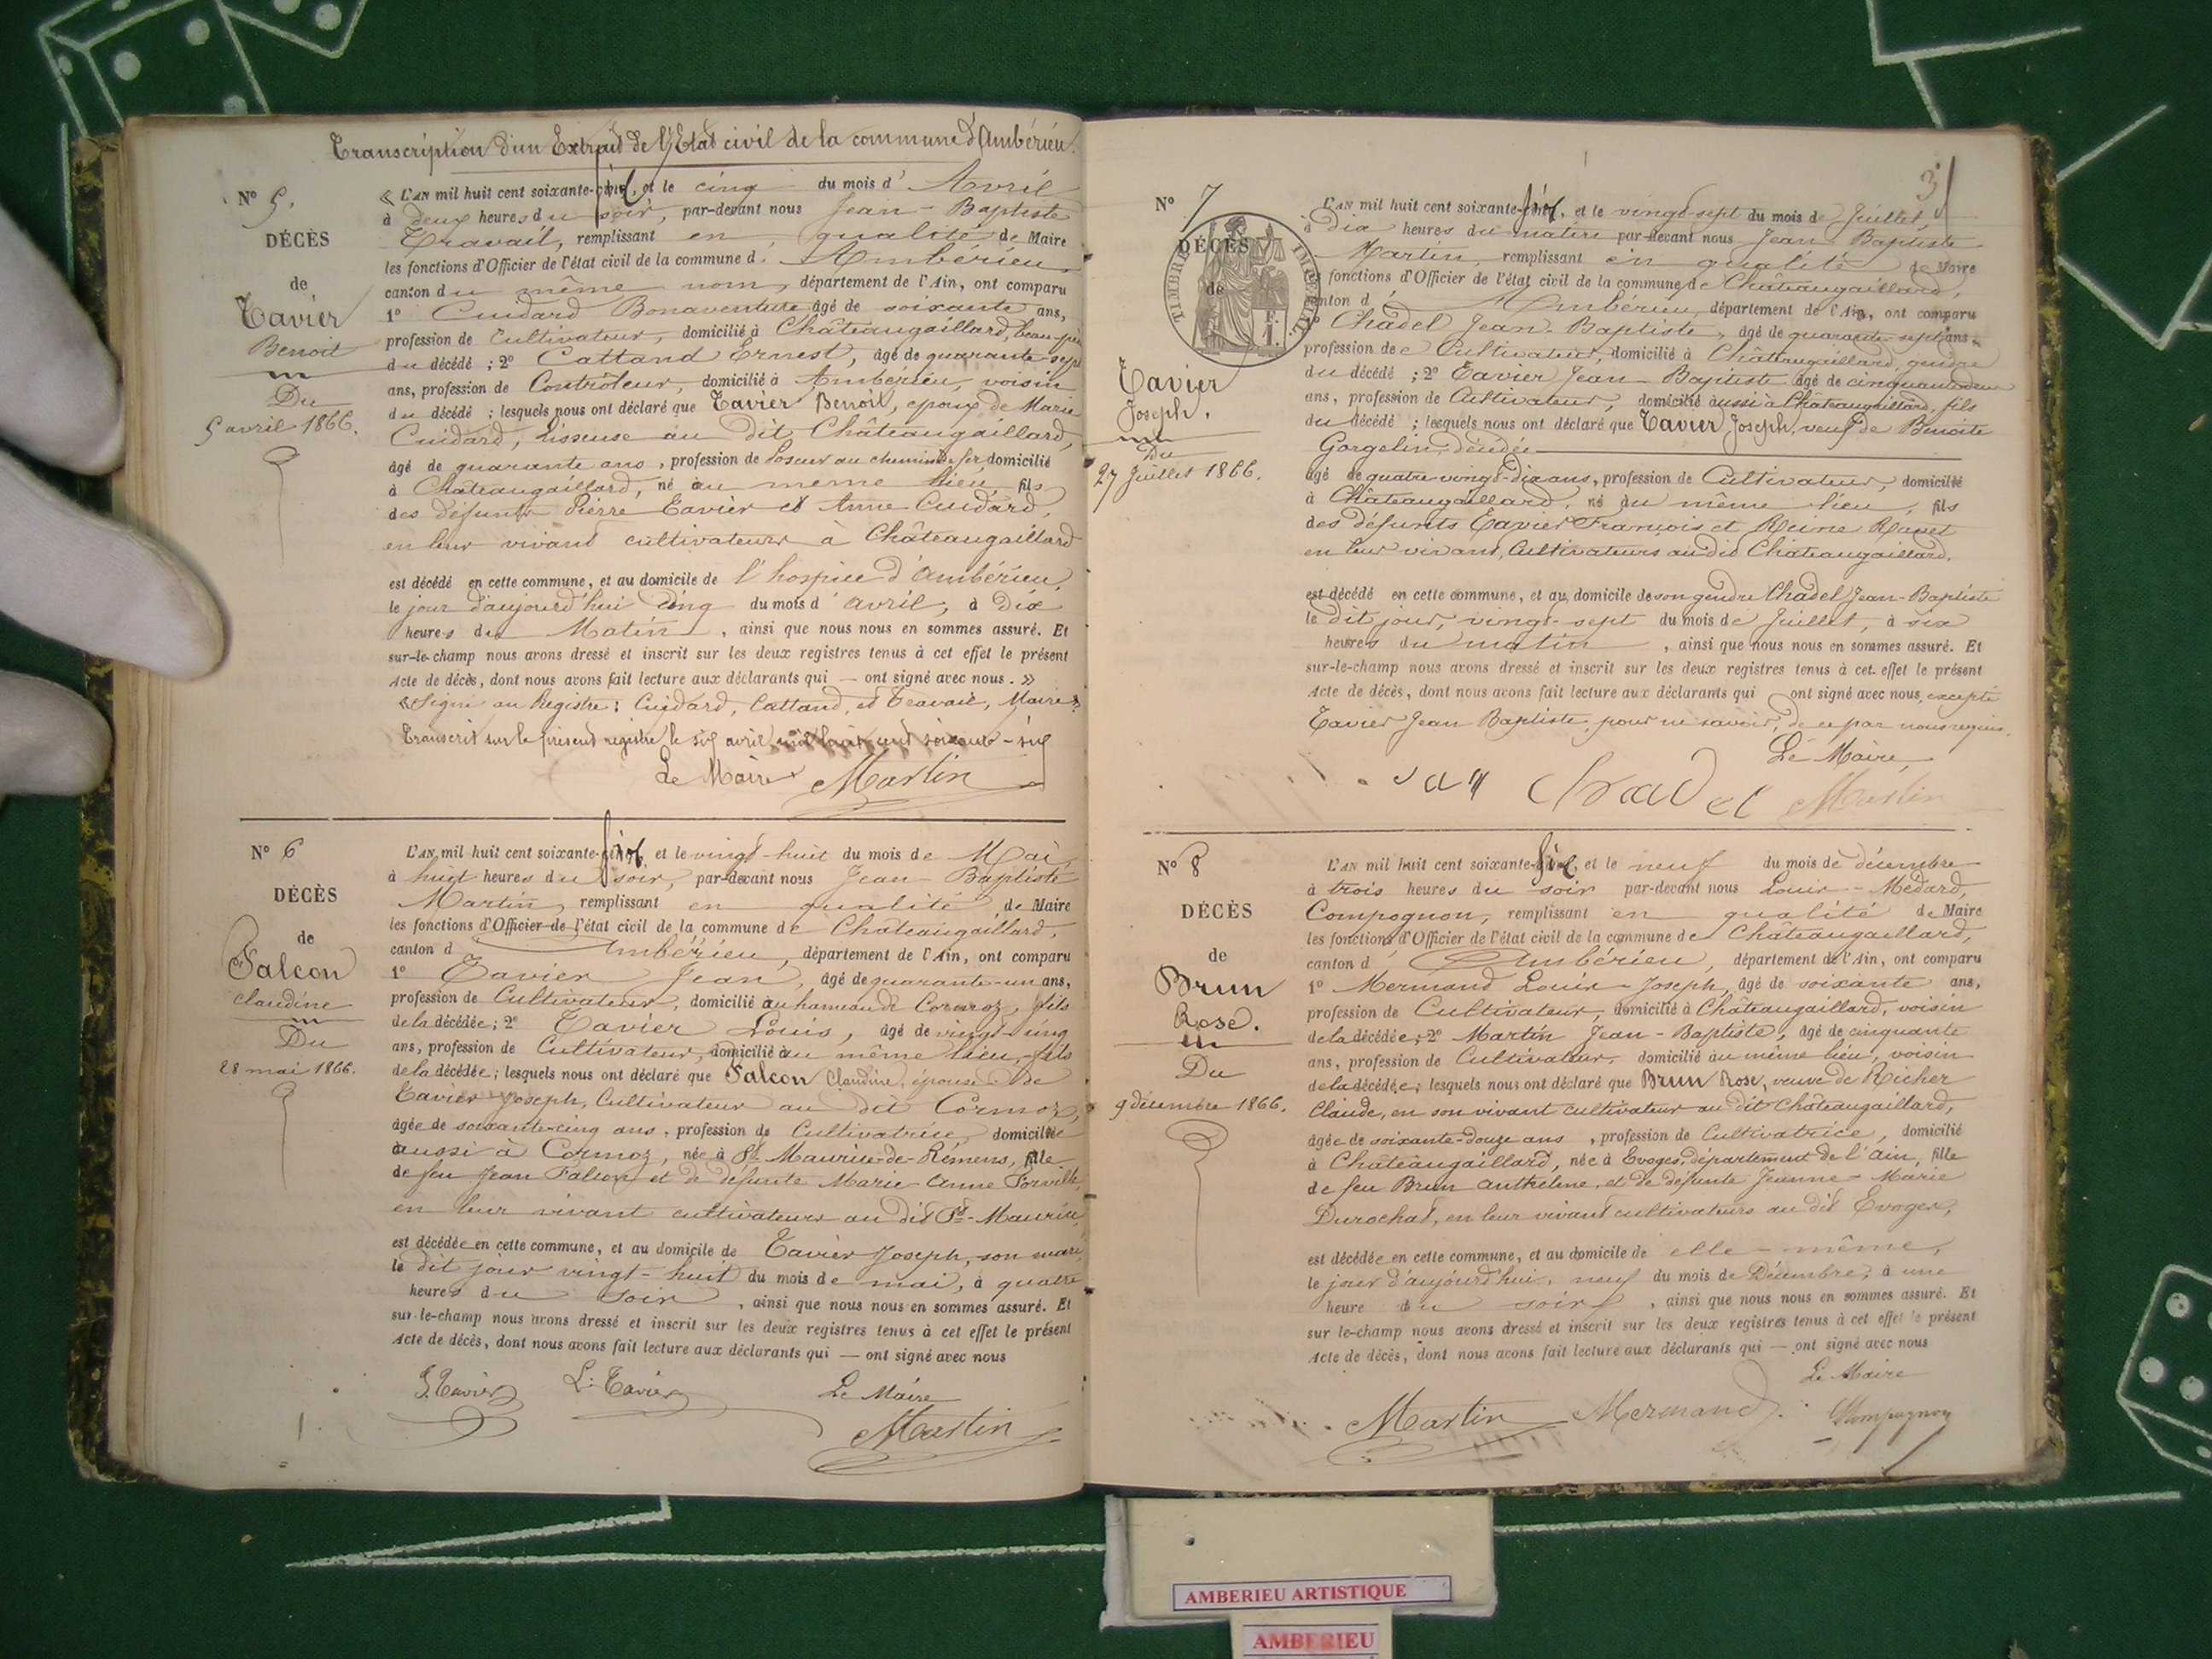 Transcription d'un Extrait de l'Etat civil de la commune d'Ambérieu.
N° 5.
DÉCÈS
de
Tavier
Benoit
Du
5 avril 1866.
« L'AN mil huit cent soixante-six, et le cinq du mois d'Avril
à deux heures du soir, par-devant nous Jean-Baptiste
Travail, remplissant en qualité de Maire
les fonctions d'Officier de l'état civil de la commune d'Ambérieu
canton du même nom, département de l'Ain, ont comparu
1° Cuidard Bonaventure âgé de soixante ans,
profession de Cultivateur, domicilié à Châteaugaillard, beau-père
du décédé ; 2° Cattand Ernest, âgé de quarante-sept
ans, profession de Contrôleur, domicilié à Ambérieu, voisin
du décédé ; lesquels nous ont déclaré que Tavier Benoit, époux de Marie
Cuidard, Lisseuse au dit Châteaugaillard,
âgé de quarante ans, profession de Poseur au chemin de fer domicilié
à Châteaugaillard, né au même lieu, fils
des défunts Pierre Tavier et Anne Cuidard,
en leur vivant cultivateurs à Châteaugaillard
est décédé en cette commune, et au domicile de l'hospice d'Ambérieu,
le jour d'aujourd'hui cinq du mois d'avril, à Dix
heures du Matin, ainsi que nous nous en sommes assuré. Et
sur-le-champ nous avons dressé et inscrit sur les deux registres tenus à cet effet le présent
Acte de décès, dont nous avons fait lecture aux déclarants qui — ont signé avec nous. »
« Signé au Registre : Cuidard, Cattand, et Travail, Maire »
Transcrit sur le présent registre le six avril mil huit cent soixante-six
Le Maire Martin
N° 6
DÉCÈS
de
Falcon
Claudine
Du
28 mai 1866.
L'AN mil huit cent soixante-six, et le vingt-huit du mois de Mai,
à huit heures du soir, par-devant nous Jean-Baptiste
Martin, remplissant en qualité de Maire
les fonctions d'Officier de l'état civil de la commune de Châteaugaillard,
canton d'Ambérieu, département de l'Ain, ont comparu
1° Tavier Jean, âgé de quarante-un ans,
profession de Cultivateur, domicilié au hameau de Cormoz, fils
de la décédée ; 2° Tavier Louis, âgé de vingt-cinq
ans, profession de Cultivateur, domicilié au même lieu, fils
de la décédée ; lesquels nous ont déclaré que Falcon Claudine, épouse de
Tavier Joseph, Cultivateur au dit Cormoz,
âgée de soixante-cinq ans, profession de Cultivatrice, domiciliée
aussi à Cormoz, née à St Maurice-de-Rémens, fille
de feu Jean Falcon et de défunte Marie Anne
en leur vivant cultivateurs au dit St-Maurice,
est décédée en cette commune, et au domicile de Tavier Joseph, son mari,
le dit jour vingt-huit du mois de mai, à quatre
heures du soir, ainsi que nous nous en sommes assuré. Et
sur-le-champ nous avons dressé et inscrit sur les deux registres tenus à cet effet le présent
Acte de décès, dont nous avons fait lecture aux déclarants qui — ont signé avec nous
J. Tavier L. Tavier Le Maire
Martin
3
N° 7
DÉCÈS
de
TIMBRE IMPERIAL
1 F.
Tavier
Joseph.
Du
27 Juillet 1866.
L'AN mil huit cent soixante-six, et le vingt-sept du mois de Juillet
à dix heures du matin par-devant nous Jean Baptiste
Martin, remplissant en qualité de Maire
les fonctions d'Officier de l'état civil de la commune de Châteaugaillard,
canton d'Ambérieu, département de l'Ain, ont comparu
1° Chadel Jean-Baptiste, âgé de quarante-sept ans,
profession de Cultivateur, domicilié à Châteaugaillard, gendre
du décédé ; 2° Tavier Jean-Baptiste âgé de cinquante-deux
ans, profession de Cultivateur, domicilié aussi à Châteaugaillard, fils
du décédé ; lesquels nous ont déclaré que Tavier Joseph, veuf de Benoite
Gorgelin, décédée
âgé de quatre vingt-dix ans, profession de Cultivateur, domicilié
à Châteaugaillard, né au même lieu, fils
des défunts Tavier François et Reine Ravet
en leur vivant, Cultivateurs au dit Châteaugaillard,
est décédé en cette commune, et au domicile de son gendre Chadel Jean-Baptiste
le dit jour, vingt-sept du mois de Juillet, à six
heures du matin, ainsi que nous nous en sommes assuré. Et
sur-le-champ nous avons dressé et inscrit sur les deux registres tenus à cet effet le présent
Acte de décès, dont nous avons fait lecture aux déclarants qui ont signé avec nous, excepté
Tavier Jean Baptiste, pour ne savoir, de ce par nous requis.
Le Maire,
Chadel Martin
N° 8
DÉCÈS
de
Brun
Rose.
Du
9 décembre 1866.
L'AN mil huit cent soixante-six, et le neuf du mois de décembre
à trois heures du soir par-devant nous Louis-Médard,
Compognon, remplissant en qualité de Maire
les fonctions d'Officier de l'état civil de la commune de Châteaugaillard,
canton d'Ambérieu, département de l'Ain, ont comparu
1° Mermand Louis-Joseph, âgé de soixante ans,
profession de Cultivateur, domicilié à Châteaugaillard, voisin
de la décédée ; 2° Martin Jean-Baptiste, âgé de cinquante
ans, profession de Cultivateur, domicilié au même lieu, voisin
de la décédée ; lesquels nous ont déclaré que Brun Rose, veuve de Richer
Claude, en son vivant cultivateur au dit Châteaugaillard,
âgée de soixante-douze ans, profession de Cultivatrice, domicilié
à Châteaugaillard, née à Evoges, département de l'ain, fille
de feu Brun Anthelme, et de défunte Jeanne-Marie
Durochat, en leur vivant cultivateurs au dit Evoges,
est décédée en cette commune, et au domicile de elle-même,
le jour d'aujourd'hui, neuf du mois de Décembre, à une
heure du soir, ainsi que nous nous en sommes assuré. Et
sur le-champ nous avons dressé et inscrit sur les deux registres tenus à cet effet le présent
Acte de décès, dont nous avons fait lecture aux déclarants qui — ont signé avec nous
Le Maire
Martin Mermand Compognon
AMBERIEU ARTISTIQUE
AMBERIEU